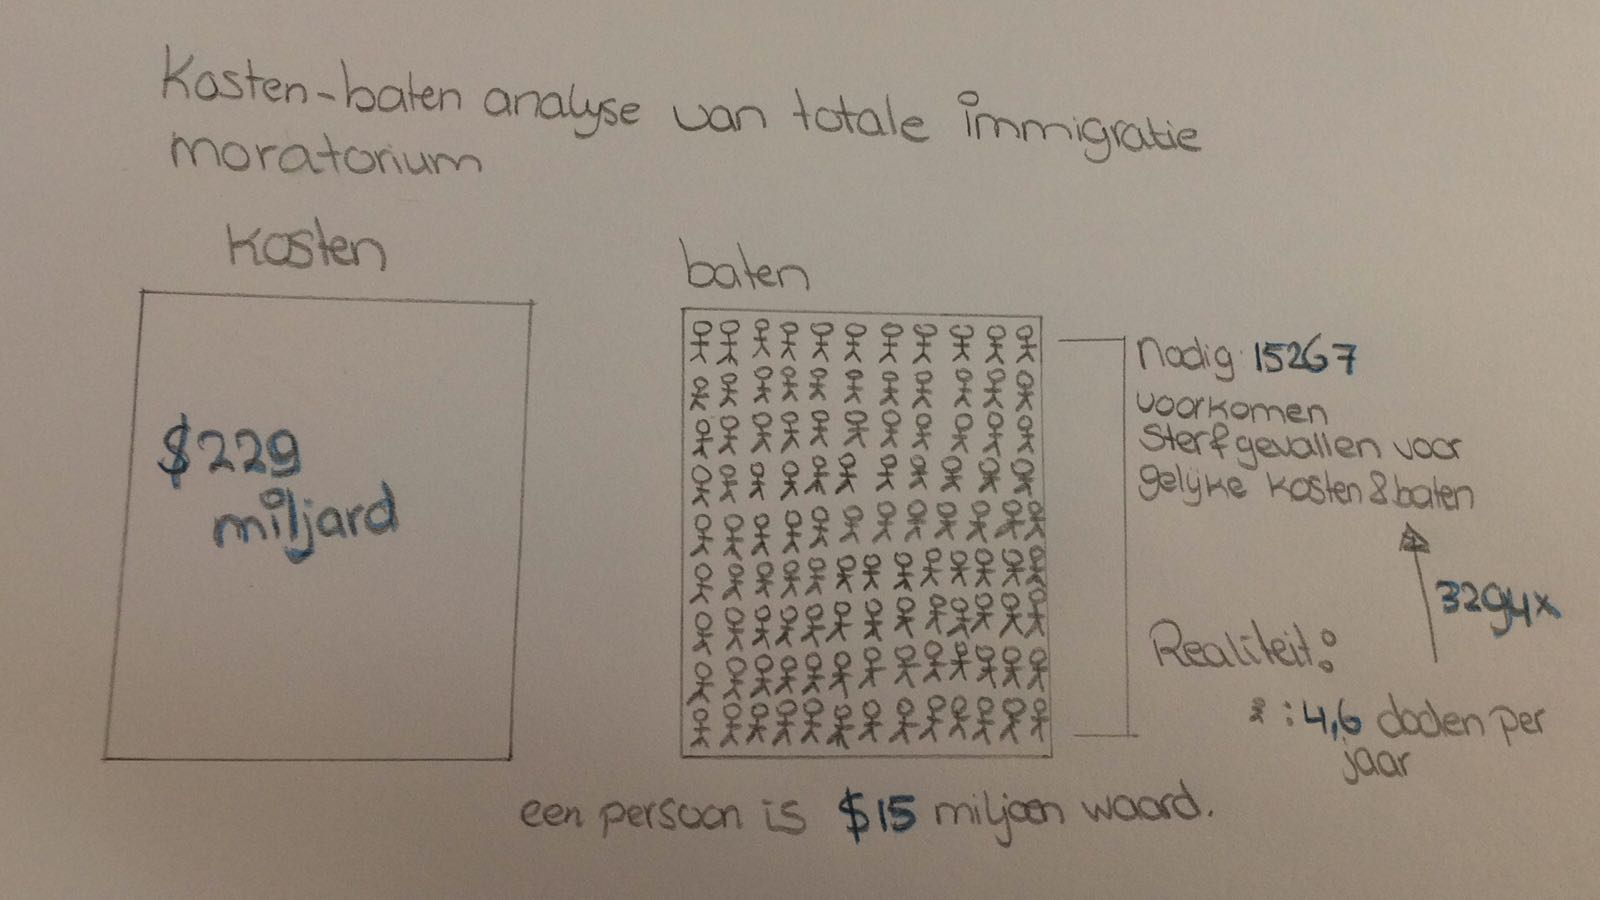 Kosten-baten analyse van totale immigratie
moratorium
Kosten
baten
$229
miljard
nodig 15267
voorkomen
Sterfgevallen voor
gelijke kosten & baten
3294x
Realiteit:
: 4,6 doden per
jaar
een persoon is $15 miljoen waard.